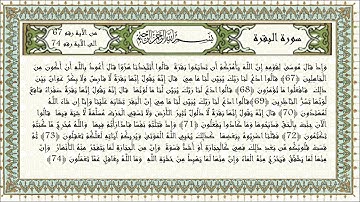 من الآية رقم 67
الى الآية رقم 74
بسم الله الرحمن الرحيم
سورة البقرة
وَإِذْ قَالَ مُوسَىٰ لِقَوْمِهِ إِنَّ اللَّهَ يَأْمُرُكُمْ أَنْ تَذْبَحُوا بَقَرَةً قَالُوا أَتَتَّخِذُنَا هُزُوًا قَالَ أَعُوذُ بِاللَّهِ أَنْ أَكُونَ مِنَ
الْجَاهِلِينَ (67) قَالُوا ادْعُ لَنَا رَبَّكَ يُبَيِّنْ لَنَا مَا هِيَ قَالَ إِنَّهُ يَقُولُ إِنَّهَا بَقَرَةٌ لَا فَارِضٌ وَلَا بِكْرٌ عَوَانٌ بَيْنَ
ذَلِكَ فَافْعَلُوا مَا تُؤْمَرُونَ (68) قَالُوا ادْعُ لَنَا رَبَّكَ يُبَيِّنْ لَنَا مَا لَوْنُهَا قَالَ إِنَّهُ يَقُولُ إِنَّهَا بَقَرَةٌ صَفْرَاءُ فَاقِعٌ
لَوْنُهَا تَسُرُّ النَّاظِرِينَ (69) قَالُوا ادْعُ لَنَا رَبَّكَ يُبَيِّنْ لَنَا مَا هِيَ إِنَّ الْبَقَرَ تَشَابَهَ عَلَيْنَا وَإِنَّا إِنْ شَاءَ اللَّهُ
لَمُهْتَدُونَ (70) قَالَ إِنَّهُ يَقُولُ إِنَّهَا بَقَرَةٌ لَا ذَلُولٌ تُثِيرُ الْأَرْضَ وَلَا تَسْقِي الْحَرْثَ مُسَلَّمَةٌ لَا شِيَةَ فِيهَا قَالُوا
الْآنَ جِئْتَ بِالْحَقِّ فَذَبَحُوهَا وَمَا كَادُوا يَفْعَلُونَ (71) وَإِذْ قَتَلْتُمْ نَفْسًا فَادَّارَأْتُمْ فِيهَا وَاللَّهُ مُخْرِجٌ مَا كُنْتُمْ
تَكْتُمُونَ (72) فَقُلْنَا اضْرِبُوهُ بِبَعْضِهَا كَذَلِكَ يُحْيِي اللَّهُ الْمَوْتَى وَيُرِيكُمْ آيَاتِهِ لَعَلَّكُمْ تَعْقِلُونَ (73) ثُمَّ
قَسَتْ قُلُوبُكُمْ مِنْ بَعْدِ ذَلِكَ فَهِيَ كَالْحِجَارَةِ أَوْ أَشَدُّ قَسْوَةً وَإِنَّ مِنَ الْحِجَارَةِ لَمَا يَتَفَجَّرُ مِنْهُ الْأَنْهَارُ وَإِنَّ
مِنْهَا لَمَا يَشَّقَّقُ فَيَخْرُجُ مِنْهُ الْمَاءُ وَإِنَّ مِنْهَا لَمَا يَهْبِطُ مِنْ خَشْيَةِ اللَّهِ وَمَا اللَّهُ بِغَافِلٍ عَمَّا تَعْمَلُونَ (74)